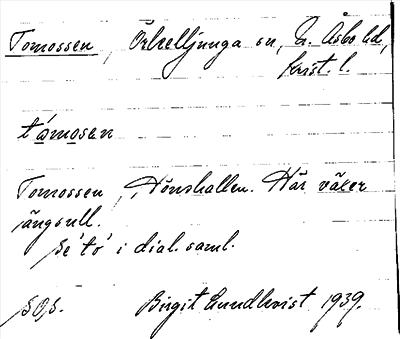 Tomossen, Örkelljunga sn, N. Åsbo hd,
Krist. l.
tåmosen
Tomossen, Hönshallen. Här växer
ängsull.
Se 'to' i dial. saml.
S.O.S. Birgit Lundkvist 1939.